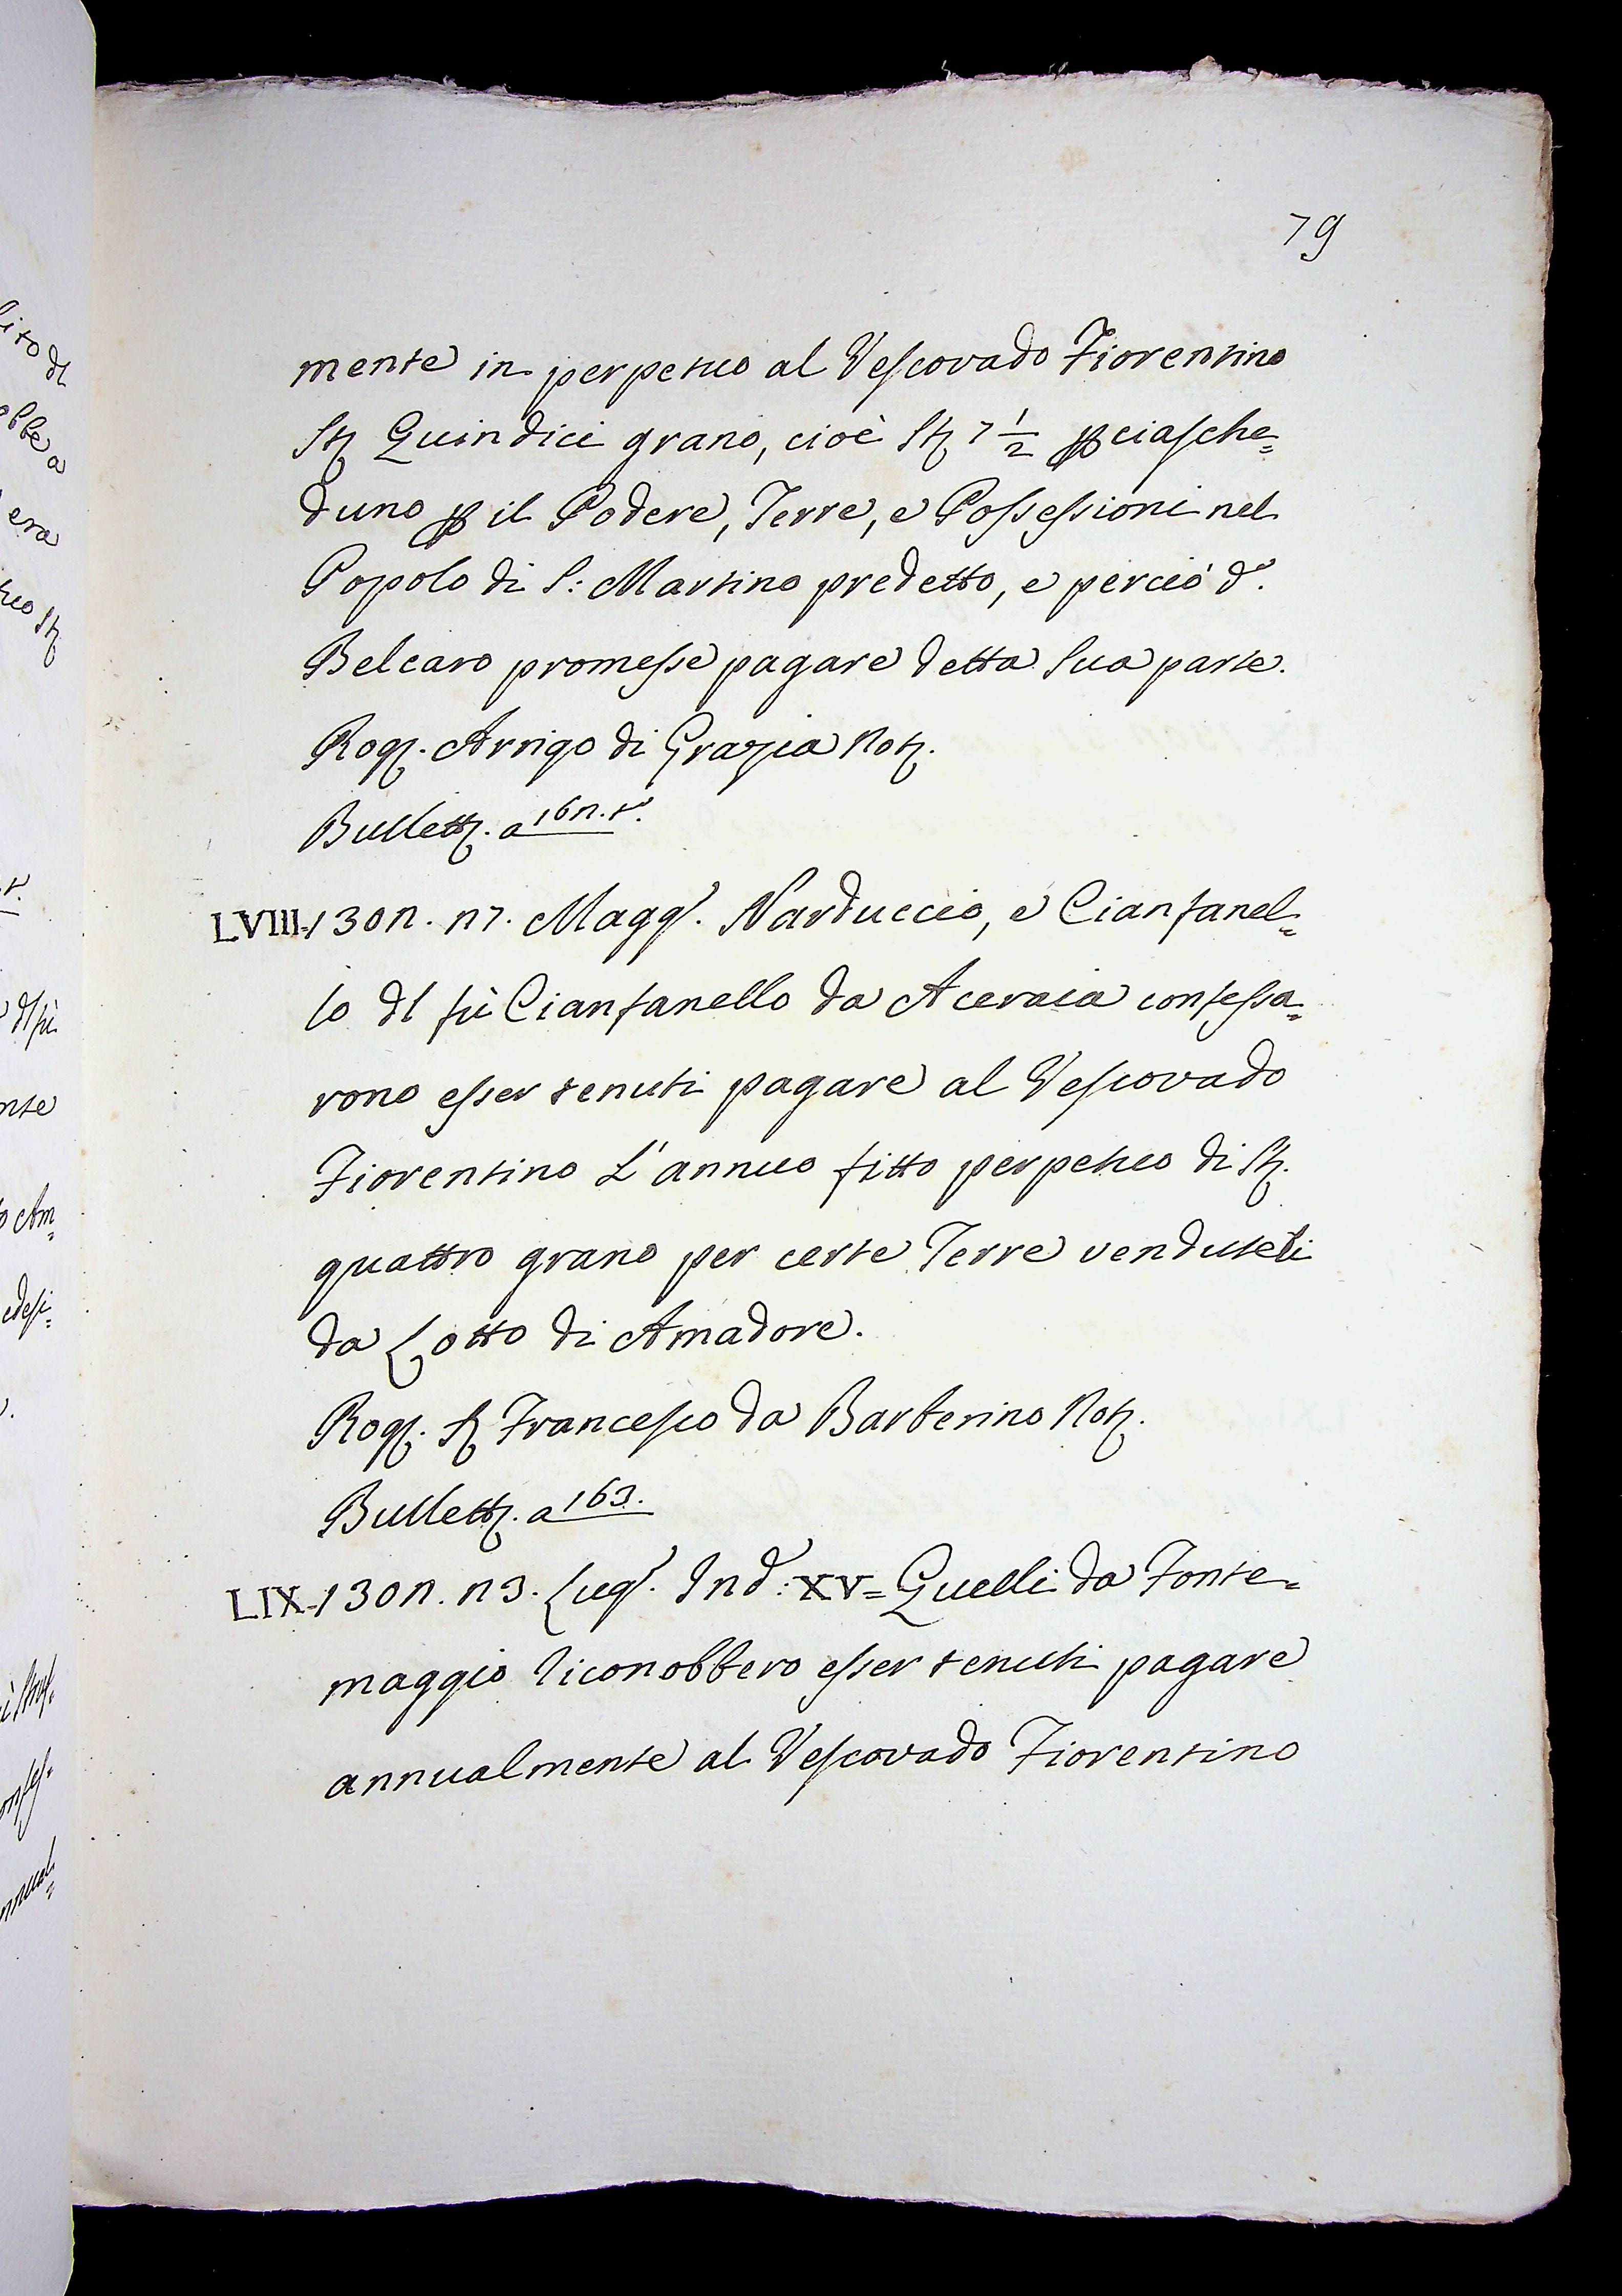 79
mente in perpetuo al Vescovado Fiorentino
Sta Quindici grano, cioè Sta 7 1/2 p ciasche=
duno p il Podere, Terre, e Possessioni nel
Popolo di S: Martino predetto, e perciò d.o
Belcaro promesse pagare detta sua parte.
Rog. Arrigo di Grazia Not.
Bullett. a 162. t.o
LVIII - 1302. 27. Magg.o Narduccio, e Cianfanel=
lo dl fù Cianfanello da Aceraia confessa=
rono esser tenuti pagare al Vescovado
Fiorentino L'annuo fitto perpetuo di St.
quattro grano per certe Terre venduteli
da Lotto di Amadore.
Rog. Sr Francesco da Barberino Not.
Bullett. a 163.
LIX - 1302. 23. Lug.o Ind.: XV = Quelli da Fonte=
maggio riconobbero esser tenuti pagare
annualmente al Vescovado Fiorentino